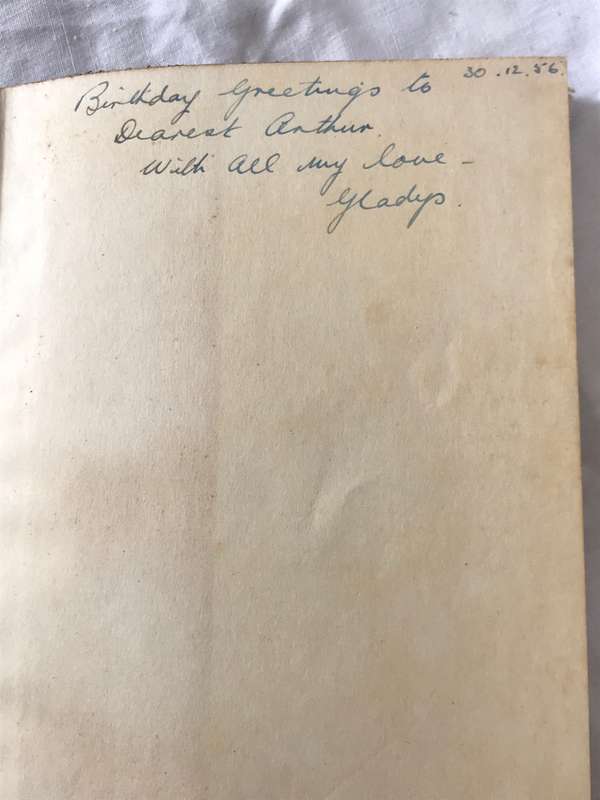 30.12.56.
Birthday Greetings to
Dearest Arthur.
With all my love -
Gladys.